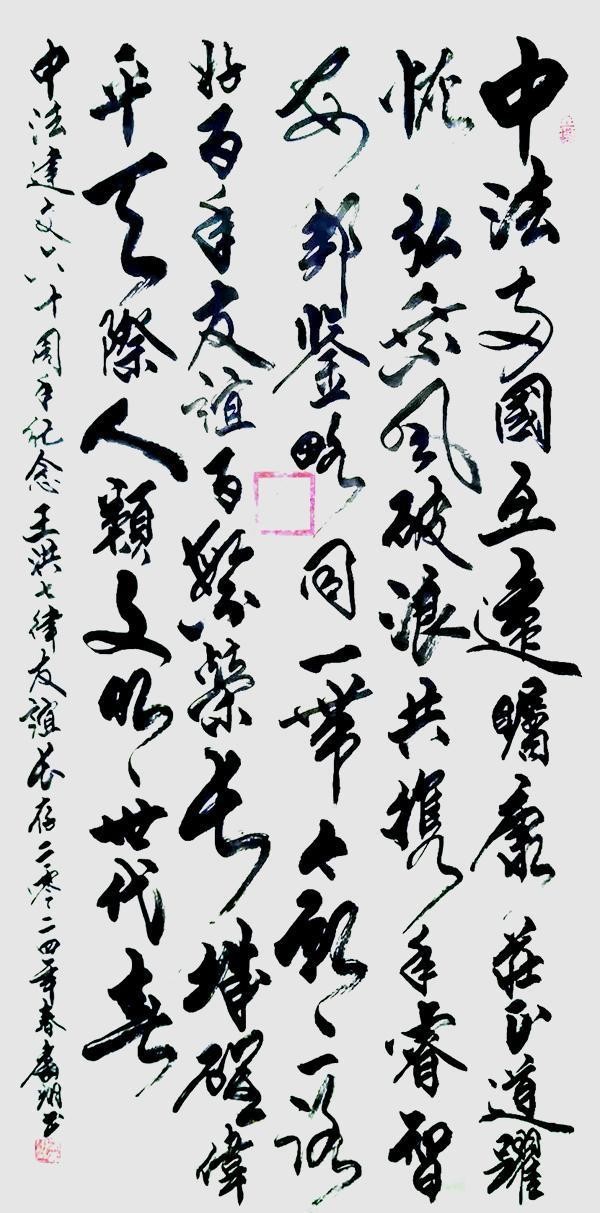 中法两國互遠矚康莊正道躍
恢弘乘风破浪共携手睿智
安邦鑒略同一帶大願〻一路
好百年友誼百繁榮長城偉
平天際人類文明〻世代春
中法建交六十周年紀念王洪七律友誼长存二零二四年春书